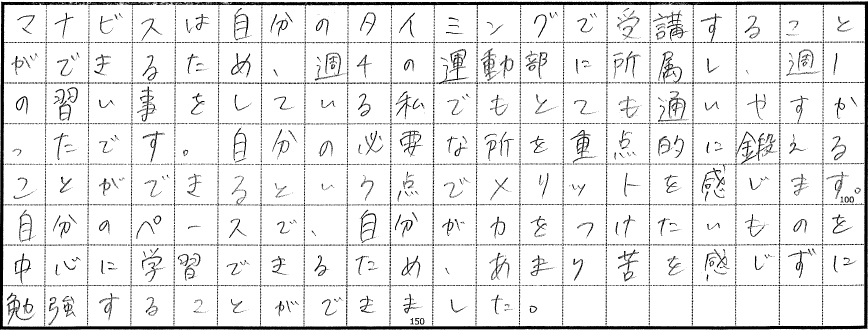 マナビスは自分のタイミングで受講すること
ができるため、週4の運動部に所属し、週1
の習い事をしている私でもとても通いやすか
ったです。自分の必要な所を重点的に鍛える
ことができるという点でメリットを感じます。
100
自分のペースで、自分が力をつけたいものを
中心に学習できるため、あまり苦を感じずに
勉強することができました。
150